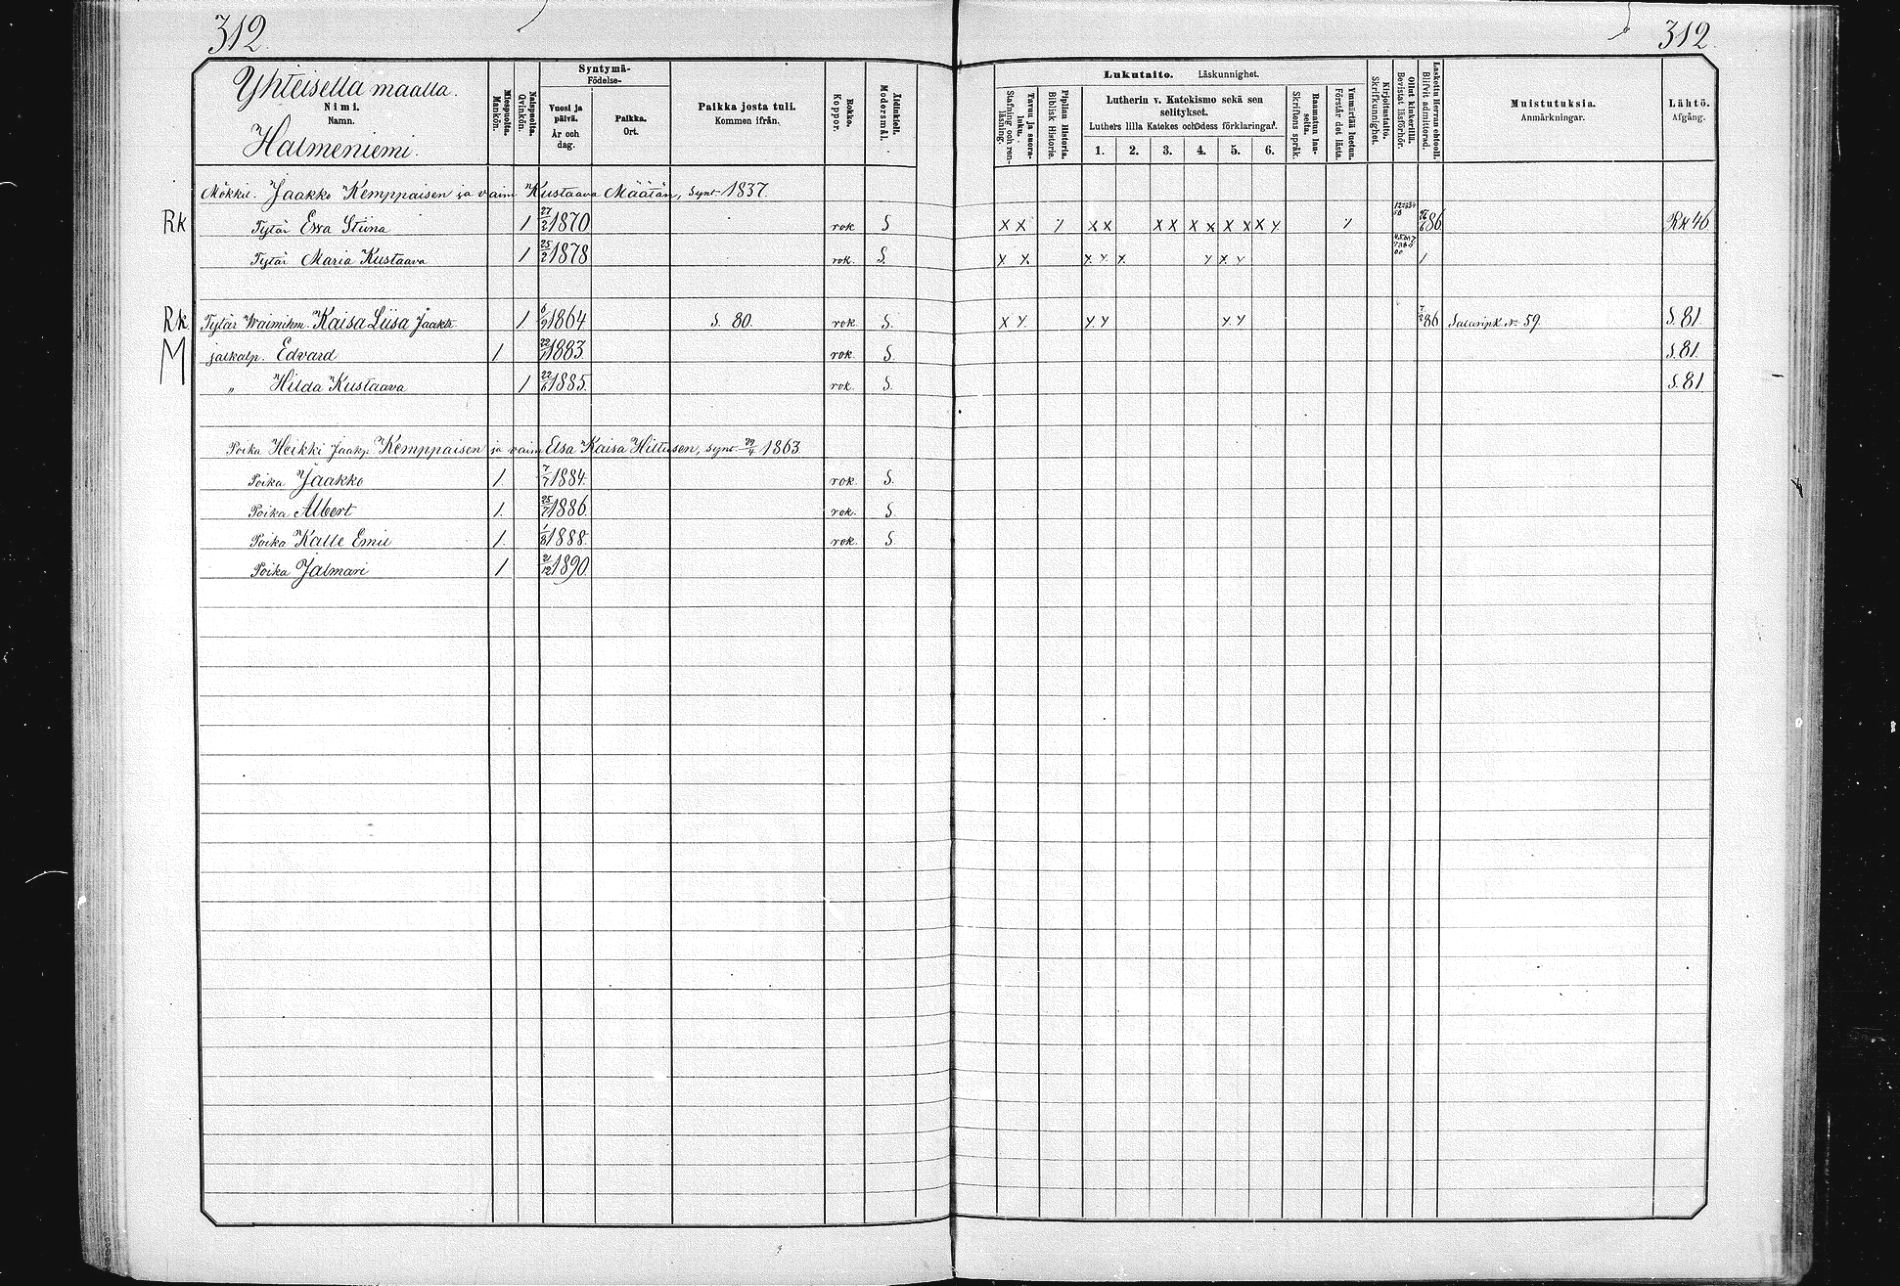 312. 312.
Yhteisella maalla.
Nimi.
Namn.
Halmeniemi.
Miespuolta. Mankön.
Naispuolta. Qvinkön.
Syntymä-
Födelse-
Vuosi ja päivä.
År och dag.
Paikka.
Ort.
Paikka josta tuli.
Kommen ifrån.
Rokko. Koppor.
Äidinkieli. Modersmål.
Lukutaito. Läskunnighet.
Tavuu ja suora- luku. Stafning och ren- läsning.
Piplian Historia. Biblisk Historie.
Lutherin v. Katekismo sekä sen selitykset.
Luthers lilla Katekes och Dess förklaringar.
1. 2. 3. 4. 5. 6.
Raamatun lau- seita. Skriftens språk.
Ymmärtää luetun. Förstår det lästa.
Kirjoitustaito. Skrifkunnighet.
Ollut kinkerillä. Bevistat läsförhör.
Laskettu Herran ehtooll. Blifvit admitterad.
Muistutuksia.
Anmärkningar.
Lähtö.
Afgång.
Mökkil. Jaakko Kemppaisen ja vaim Kustaava Määtän, synt. 1837.
Rk Tytär Eva Stiina 1 27/2 1870 rok S x x / x x x x x x x x x y / 86 Rk 46
Tytär Maria Kustaava 1 25/2 1878 rok. S. x x x y x y x y /
Rk Tytär Kaisa Liisa Jaakk. 1 1864 S. 80. rok S. x y x y x y 86 59. S. 81
M jalkalp. Edvard 1 1883 rok. S. S. 81.
„ Hilda Kustaava 1 22/6 1885. rok. S. S. 81
Poika Heikki Jaakp. Kemppaisen ja vaim Elsa Kaisa Hiltusen, synt. 29/4 1863
Poika Jaakko 1. 7/7 1884. rok. S.
Poika Albert 1. 25/7 1886. rok. S.
Poika Kalle Emil 1. 1/8 1888. rok. S.
Poika Jalmari 1. 2/12 1890.